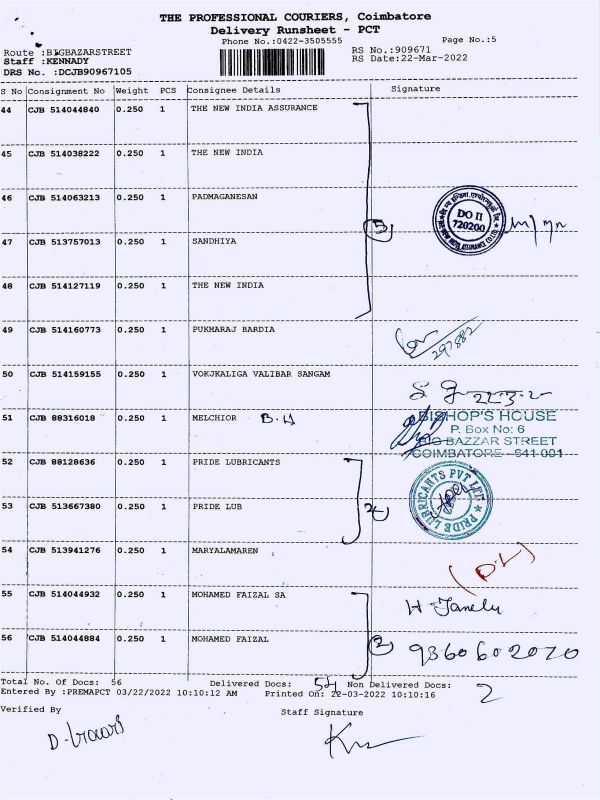 THE PROFESSIONAL COURIERS, Coimbatore
Delivery Runsheet - PCT
Phone No.:0422-3505555 Page No.:5
Route :BIGBAZARSTREET RS No.:909671
Staff :KENNADY RS Date:22-Mar-2022
DRS No. :DCJB90967105
S No Consignment No Weight PCS Consignee Details Signature
44 CJB 514044840 0.250 1 THE NEW INDIA ASSURANCE
45 CJB 514038222 0.250 1 THE NEW INDIA
46 CJB 514063213 0.250 1 PADMAGANESAN
DO II
720200
5
47 CJB 513757013 0.250 1 SANDHIYA
48 CJB 514127119 0.250 1 THE NEW INDIA
49 CJB 514160773 0.250 1 PUKHARAJ BARDIA
50 CJB 514159155 0.250 1 VOKJKALIGA VALIBAR SANGAM
51 CJB 88316018 0.250 1 MELCHIOR B.H
BISHOP'S HOUSE
P. Box No: 6
BIG BAZZAR STREET
COIMBATORE - 641 001
52 CJB 88128636 0.250 1 PRIDE LUBRICANTS
PRIDE LUBRICANTS PVT LTD
53 CJB 513667380 0.250 1 PRIDE LUB 2
54 CJB 513941276 0.250 1 MARYALAMAREN (D.L)
55 CJB 514044932 0.250 1 MOHAMED FAIZAL SA
56 CJB 514044884 0.250 1 MOHAMED FAIZAL 2 9360602070
Total No. Of Docs: 56 Delivered Docs: 54 Non Delivered Docs: 2
Entered By :PREMAPCT 03/22/2022 10:10:12 AM Printed On: 22-03-2022 10:10:16
Verified By Staff Signature